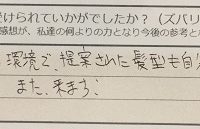 受けられていかがでしたか？（ズバリ
感想が、私達の何よりの力となり今後の参考と
環境で提案された髪型も自
また、来まち